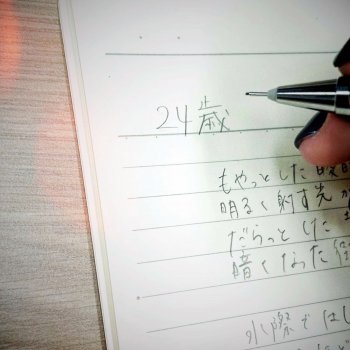 24歳
もやっとした
明るく射す先が
だらっとした
暗くなった
水際では